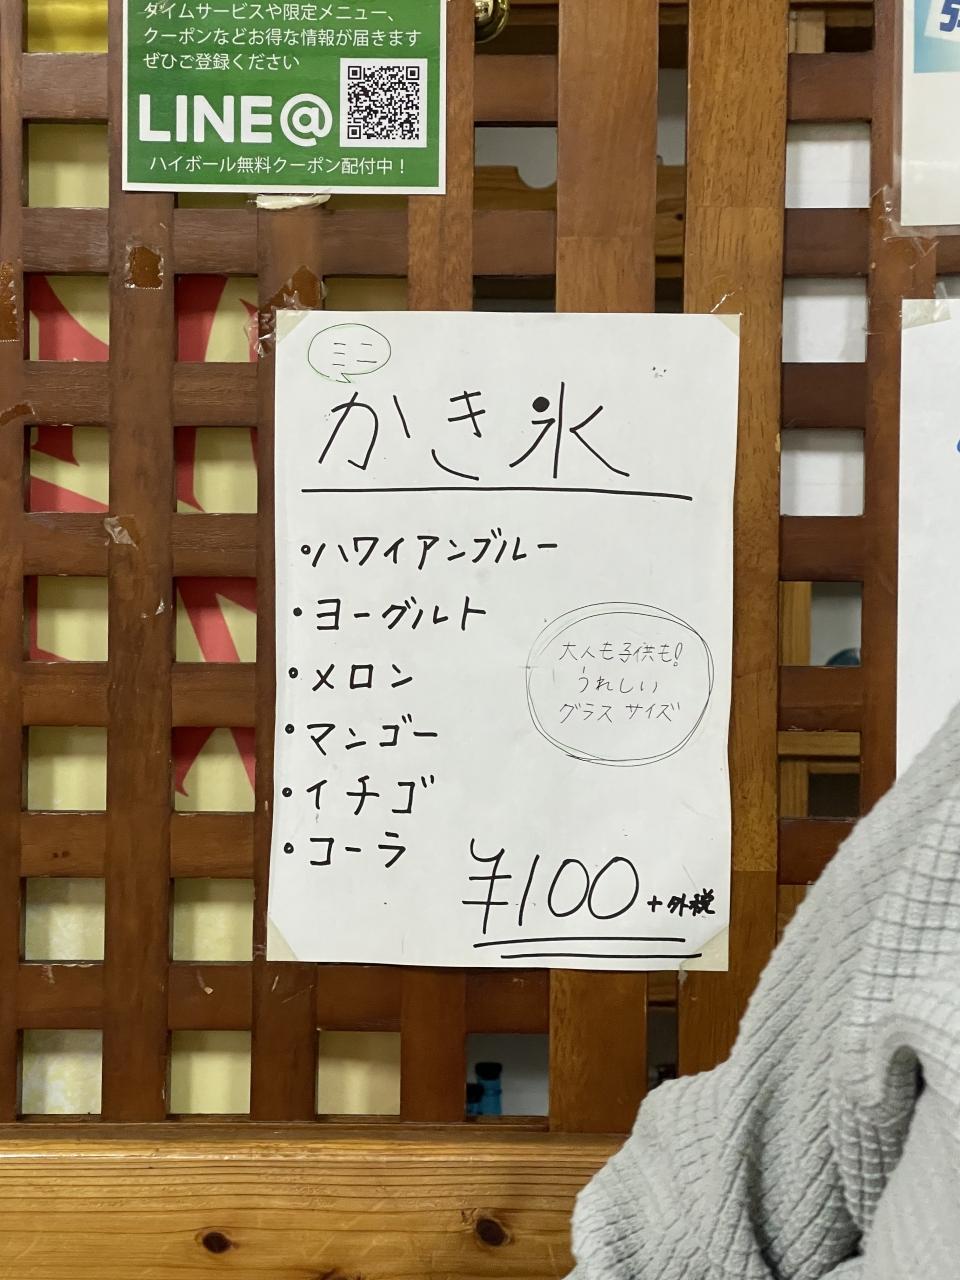 タイムサービスや限定メニュー、
クーポンなどお得な情報が届きます
ぜひご登録ください
LINE@
ハイボール無料クーポン配付中！
ミニ
かき氷
・ハワイアンブルー
・ヨーグルト
・メロン
・マンゴー
・イチゴ
・コーラ
大人も子供も!
うれしい
グラスサイズ
¥100+外税